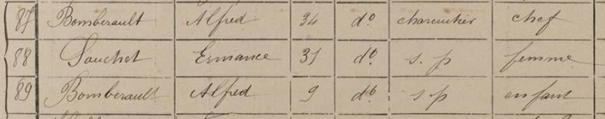 87 Bomberault Alfred 34 do charcutier chef
88 Souchet Ermance 31 do s. p femme
89 Bomberault Alfred 9 do s. p enfant